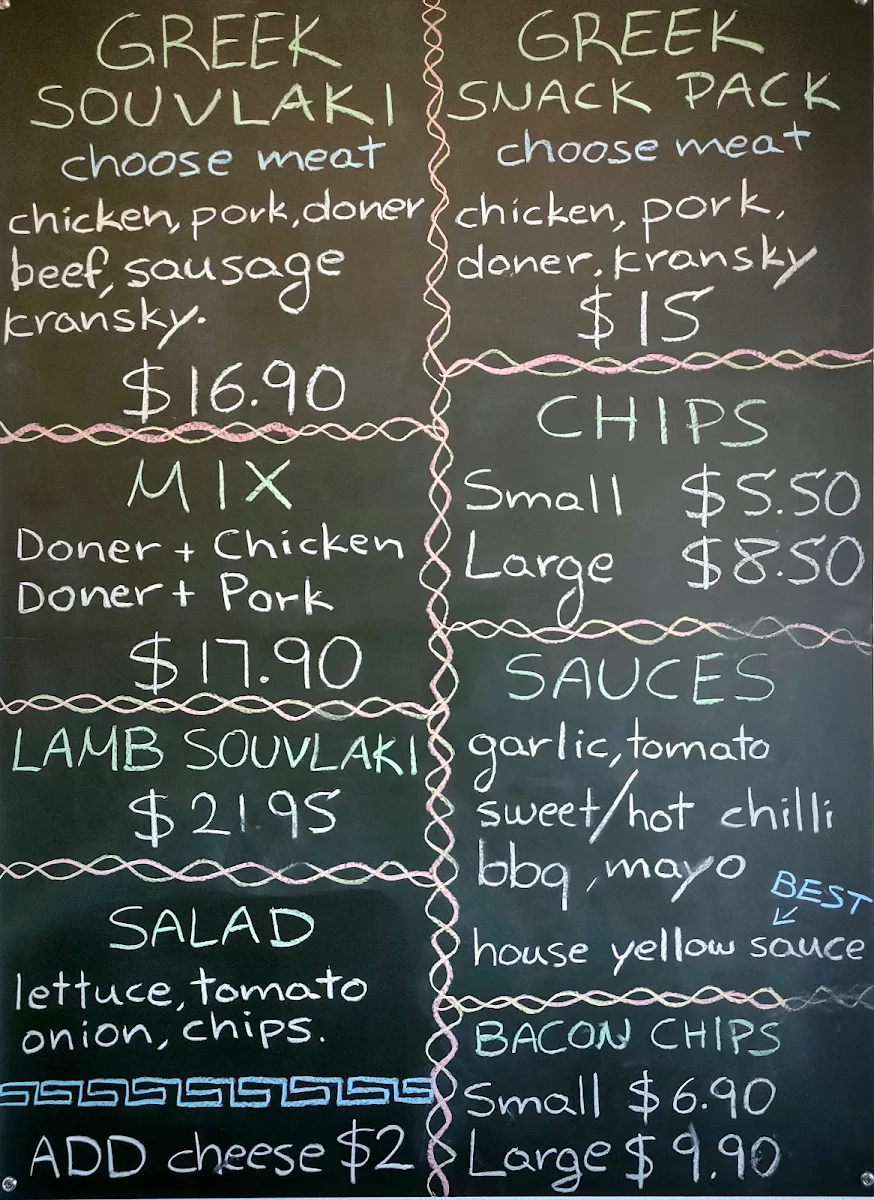 GREEK
SOUVLAKI
choose meat
chicken, pork, doner
beef, sausage
kransky.
$16.90
MIX
Doner + Chicken
Doner + Pork
$17.90
LAMB SOUVLAKI
$21.95
SALAD
lettuce, tomato
onion, chips.
ADD cheese $2
GREEK
SNACK PACK
choose meat
chicken, pork,
doner, kransky
$15
CHIPS
Small $5.50
Large $8.50
SAUCES
garlic, tomato
sweet/hot chilli
bbq, mayo
BEST
house yellow sauce
BACON CHIPS
Small $6.90
Large $9.90